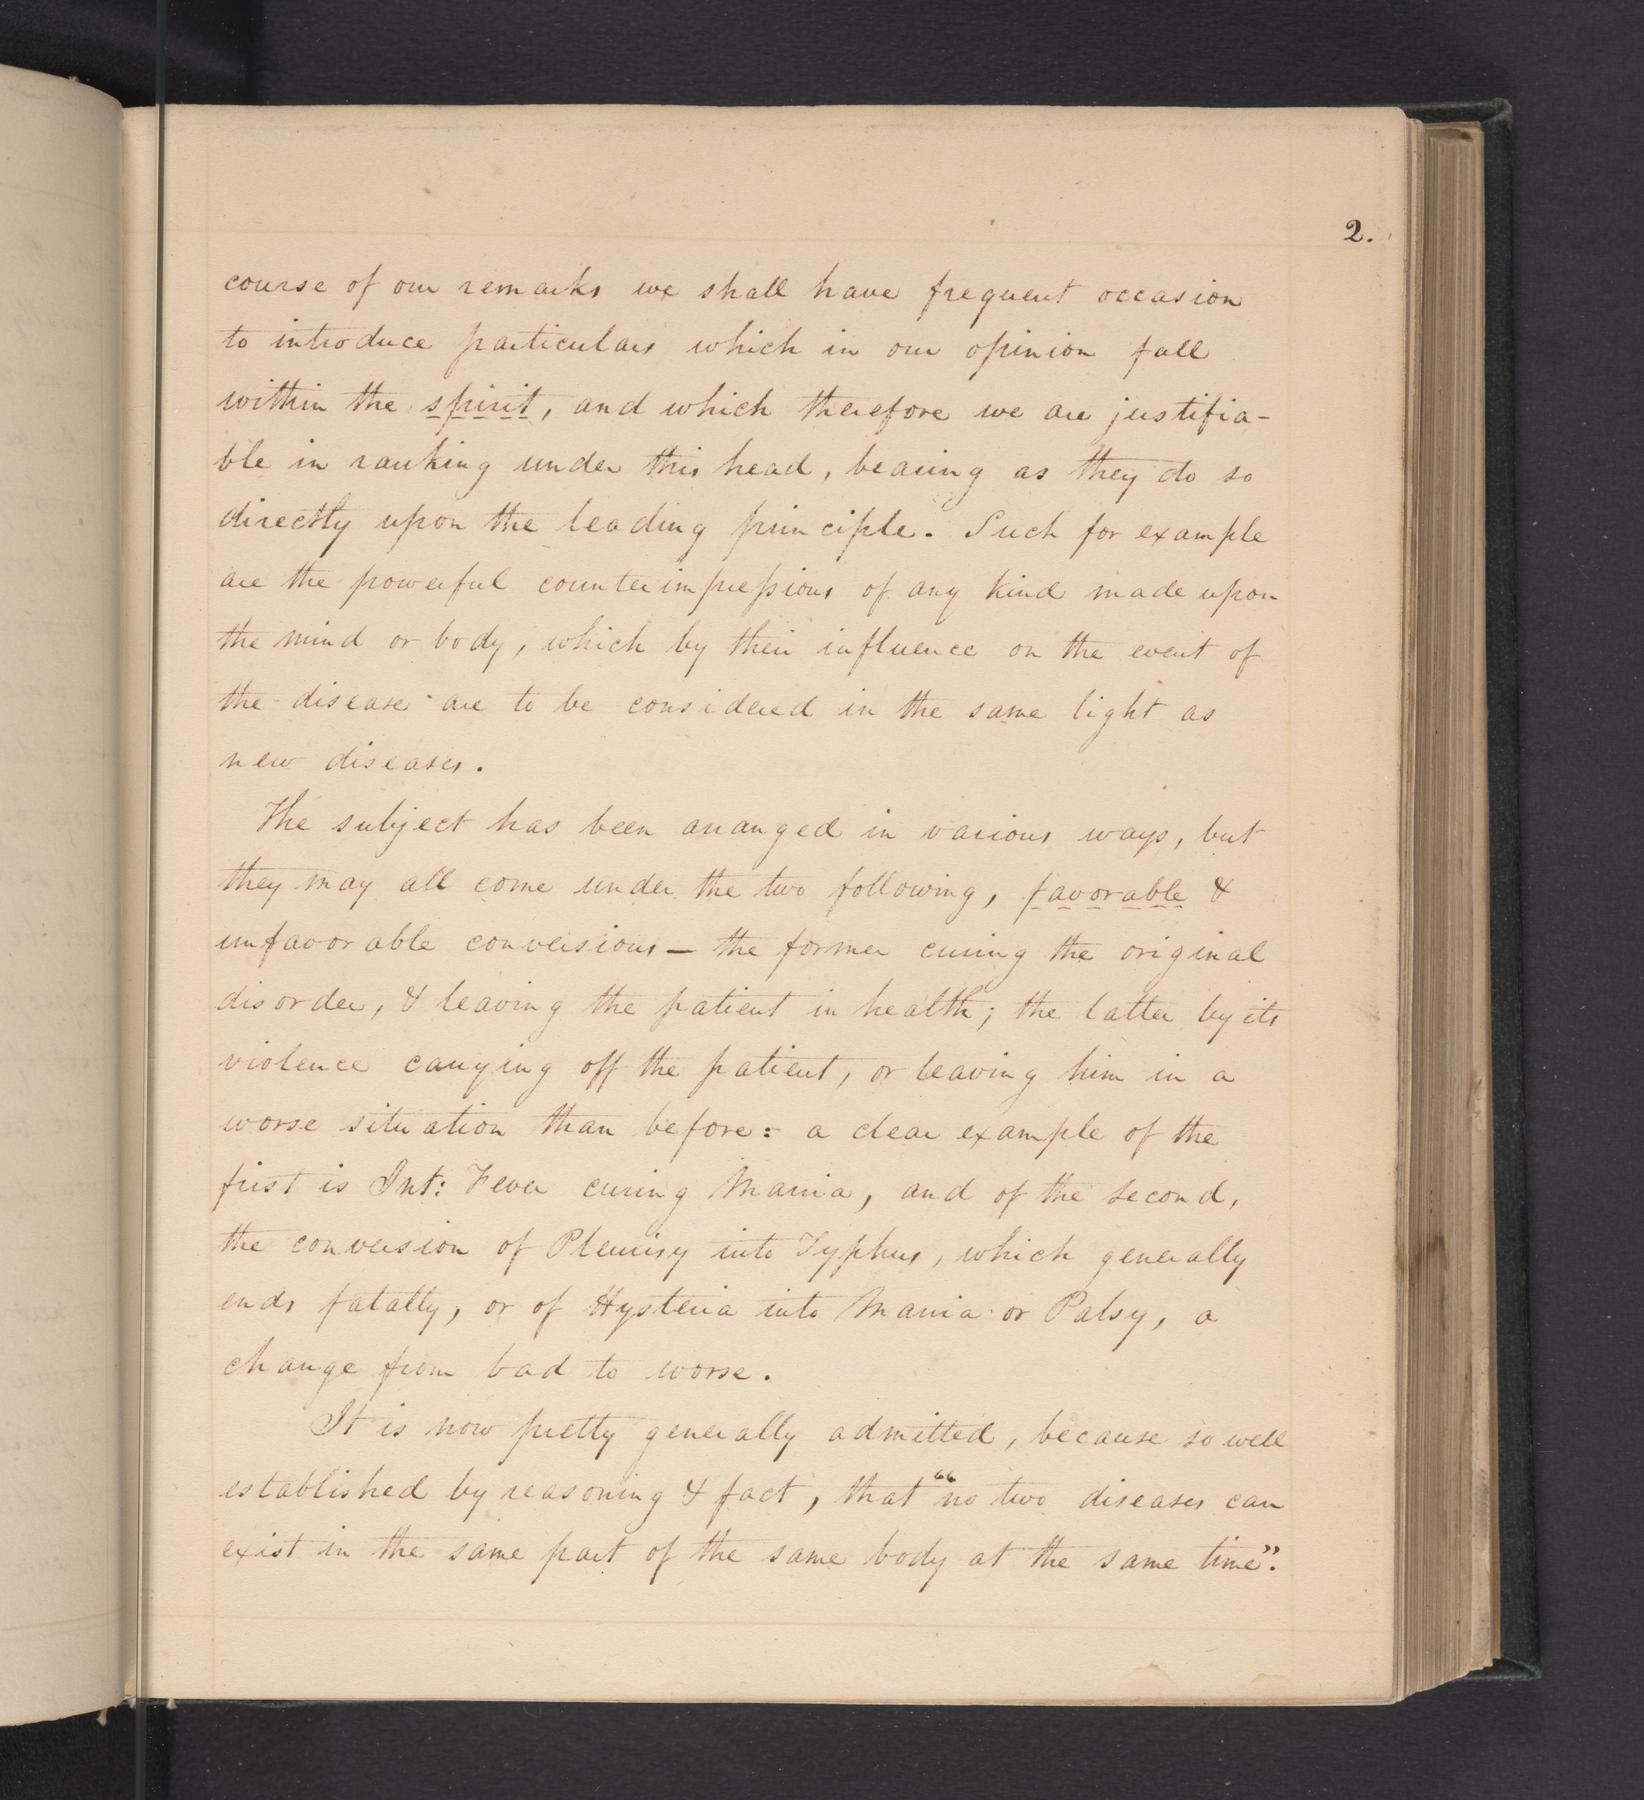 2.
course of our remarks we shall have frequent occasion
to introduce particulars which in our opinion fall
within the spirit, and which therefore we are justifia-
ble in ranking under this head, bearing as they do so
directly upon the leading principle. Such for example
are the powerful counterimpressions of any kind made upon
the mind or body, which by their influence on the event of
the disease are to be considered in the same light as
new diseases.
The subject has been arranged in various ways, but
they may all come under the two following, favorable &
unfavorable conversions — the former curing the original
disorder, & leaving the patient in health; the latter by its
violence carrying off the patient, or leaving him in a
worse situation than before:- a clear example of the
first is Int: Fever curing Mania, and of the second,
the conversion of Pleurisy into Typhus, which generally
ends fatally, or of Hysteria into Mania or Palsy, a
change from bad to worse.
It is now pretty generally admitted, because so well
established by reasoning & fact, that "no two diseases can
exist in the same part of the same body at the same time".